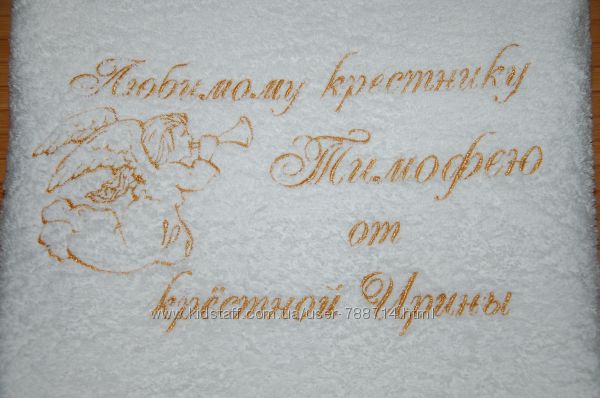 Любимому крестнику
Тимофею
от
крёстной Ирины
www.kidstaff.com.ua/user-788714.html